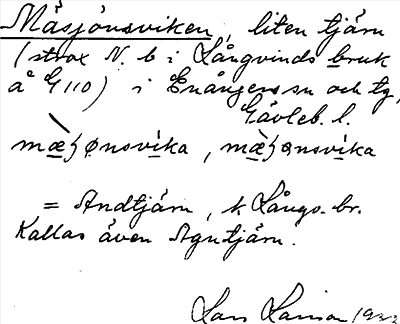 Måsjönsviken, liten tjärn
(strax N. b i Långvinds bruk
å G110) i Enångers sn och tg,
Gävleb. l.
mæ̀ʒønsvika, mæ̀ʒənsvika
= Andtjärn, k Långv. br.
Kallas även Agntjärn.
Lars Larsson